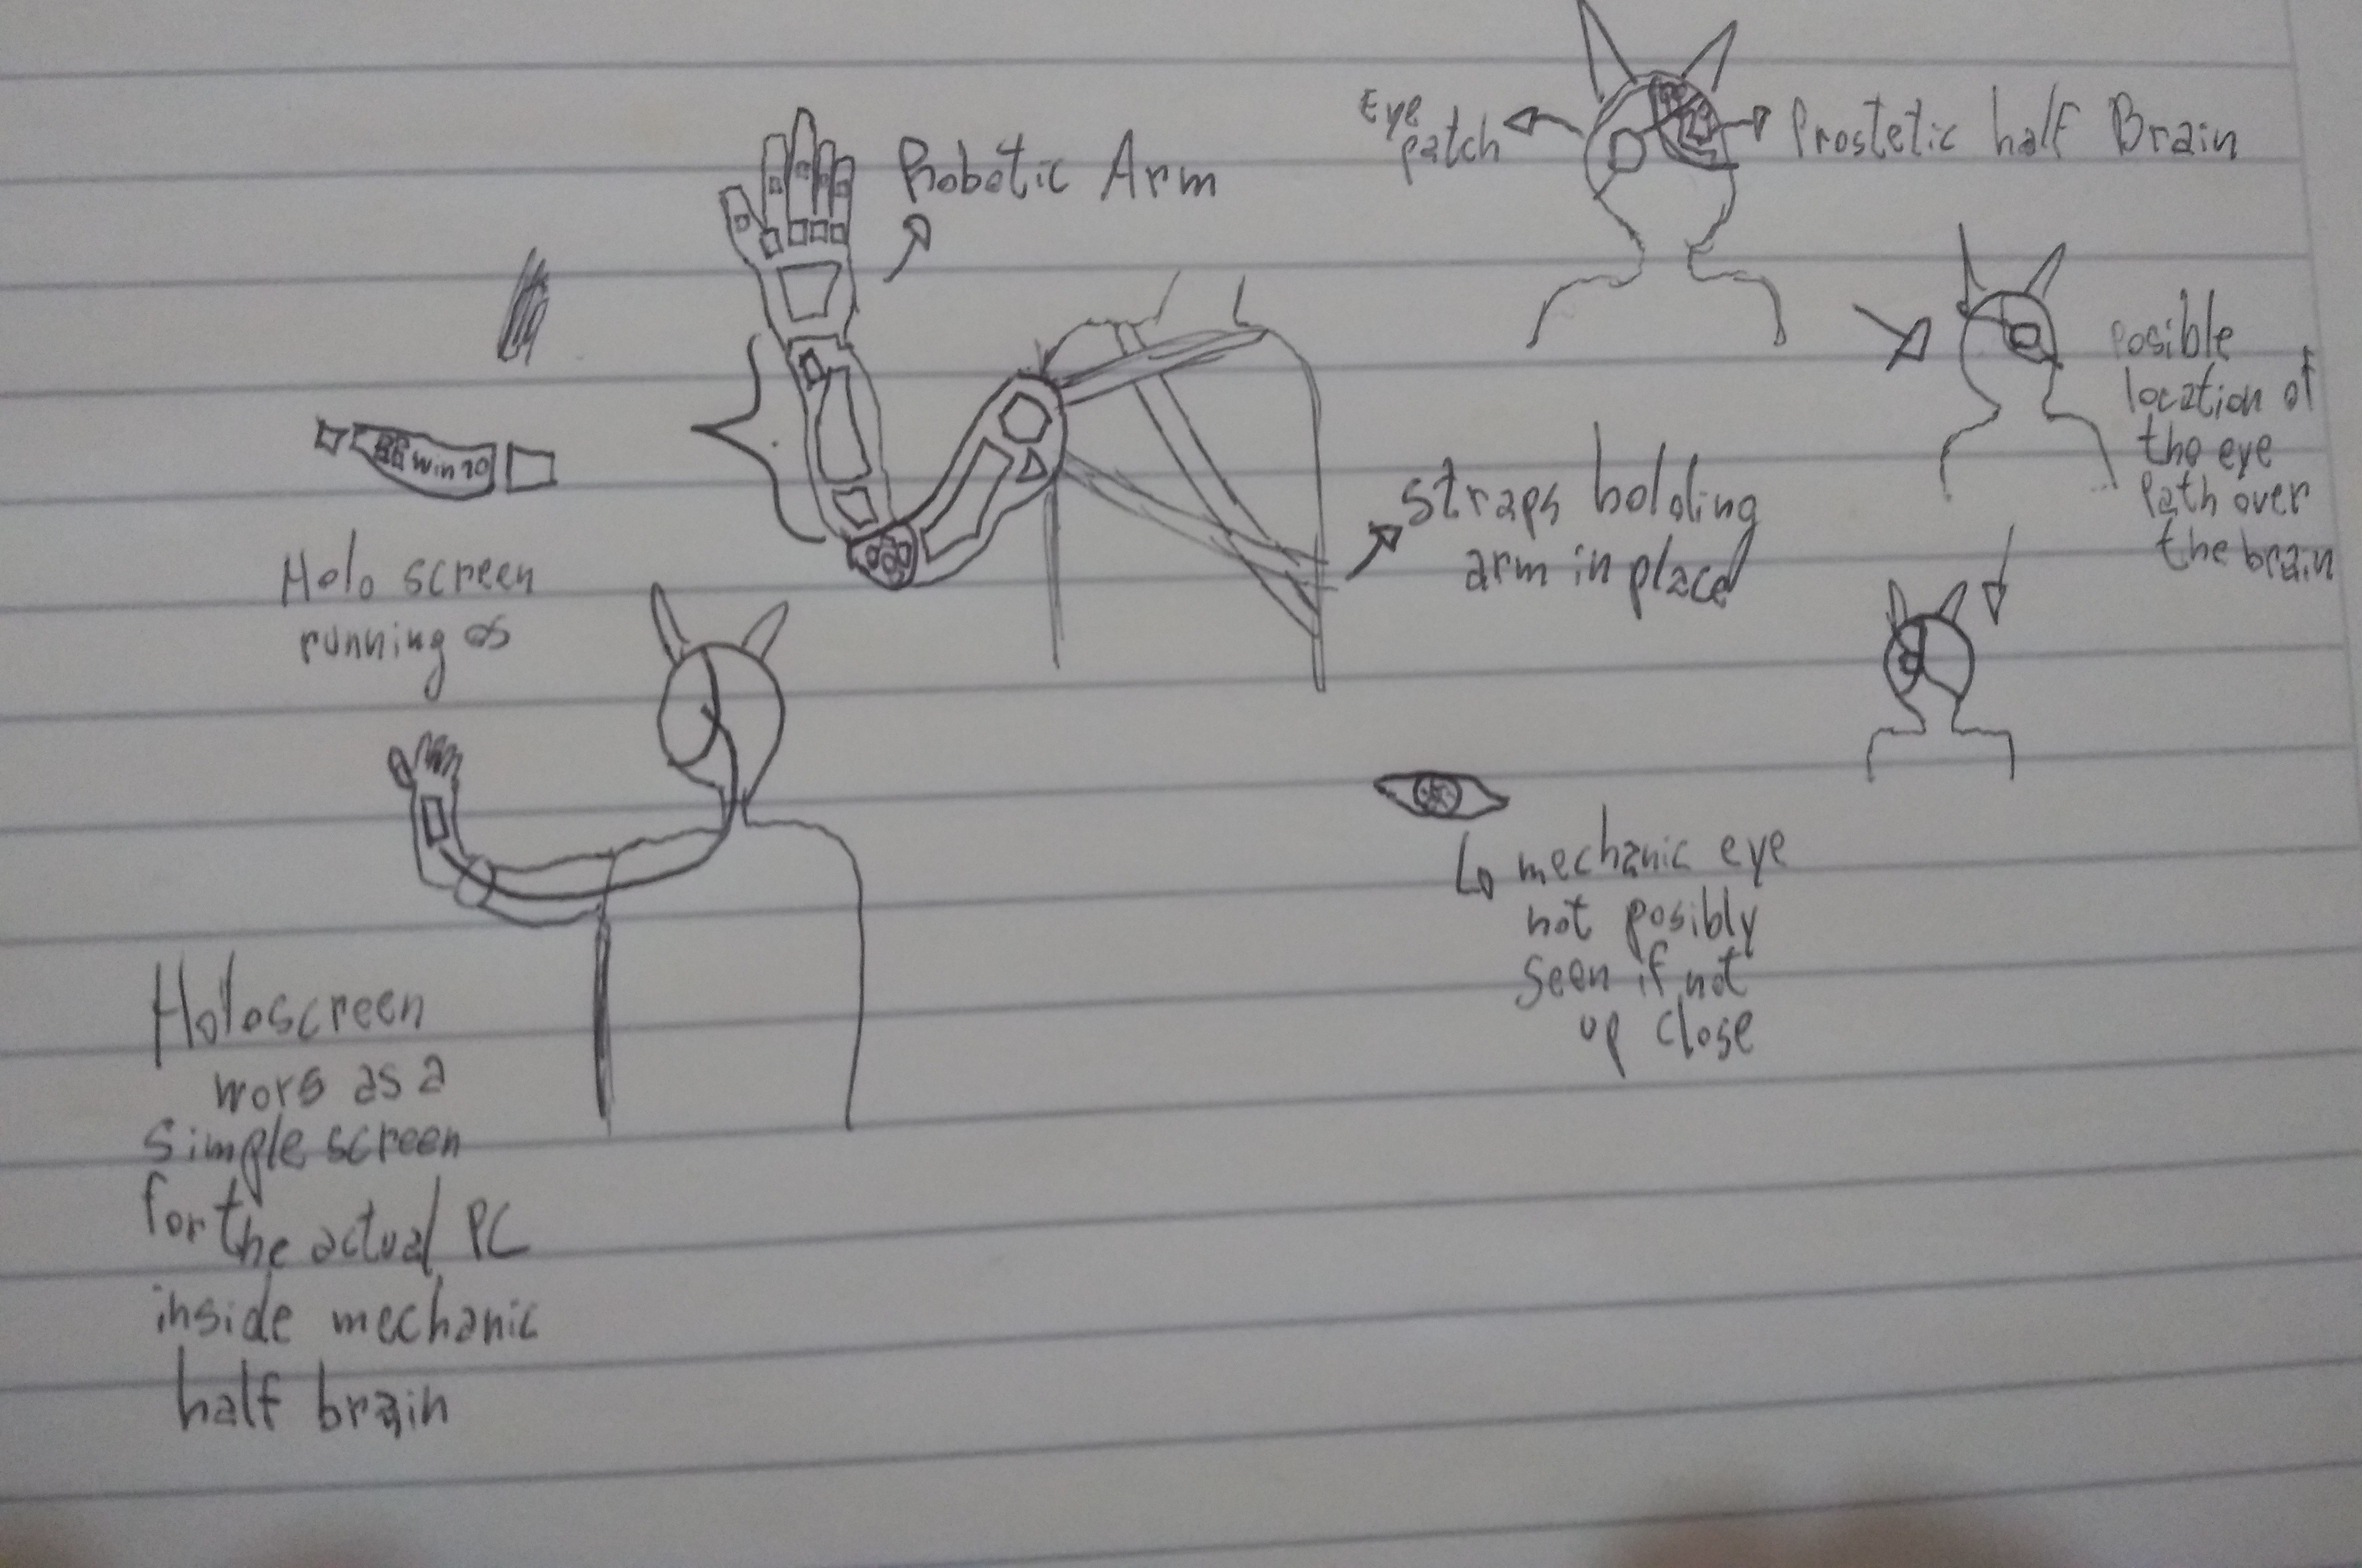 Eye
patch
Prostetic half Brain
Robotic Arm
Posible
location of
the eye
Path over
the brain
Win 10
Holo screen
running os
straps holding
arm in place
mechanic eye
not posibly
seen if not
up close
Holoscreen
wors as a
simple screen
for the actual PC
inside mechanic
half brain